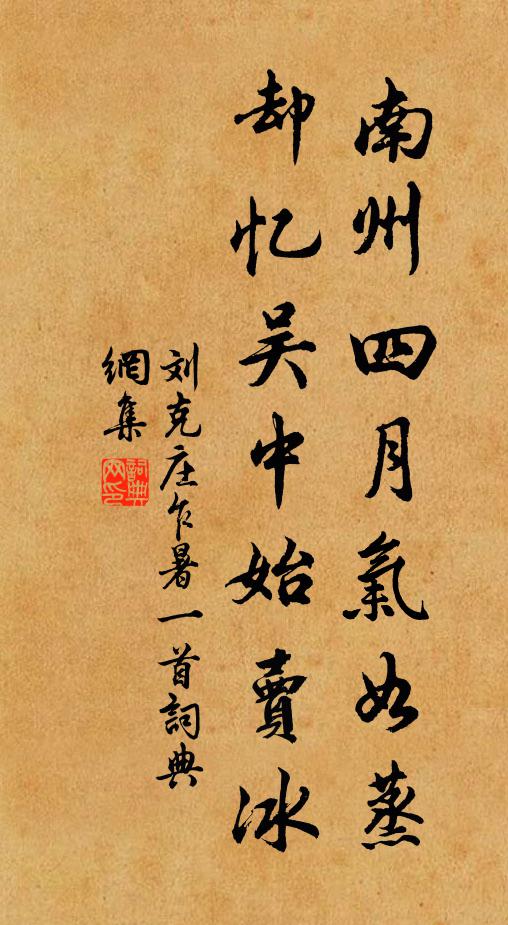 南州四月氣如蒸
却忆吴中始賣冰
刘克庄乍暑一首詞典
網集
詞典网印